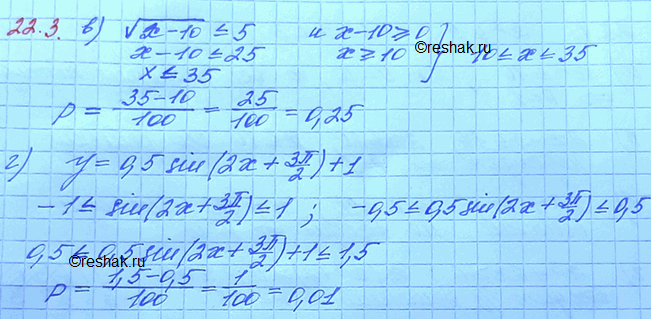 22.3. в) √x-10 ≤ 5 и x-10 ≥ 0
x-10 ≤ 25 x ≥ 10 ] 10 ≤ x ≤ 35
©reshak.ru
x ≤ 35
p = 35-10/100 = 25/100 = 0,25
г) y = 0,5 sin(2x + 3π/2) + 1
-1 ≤ sin(2x + 3π/2) ≤ 1 ; -0,5 ≤ 0,5 sin(2x + 3π/2) ≤ 0,5
0,5 ≤ 0,5 sin(2x + 3π/2) + 1 ≤ 1,5
©reshak.ru
p = 1,5-0,5/100 = 1/100 = 0,01